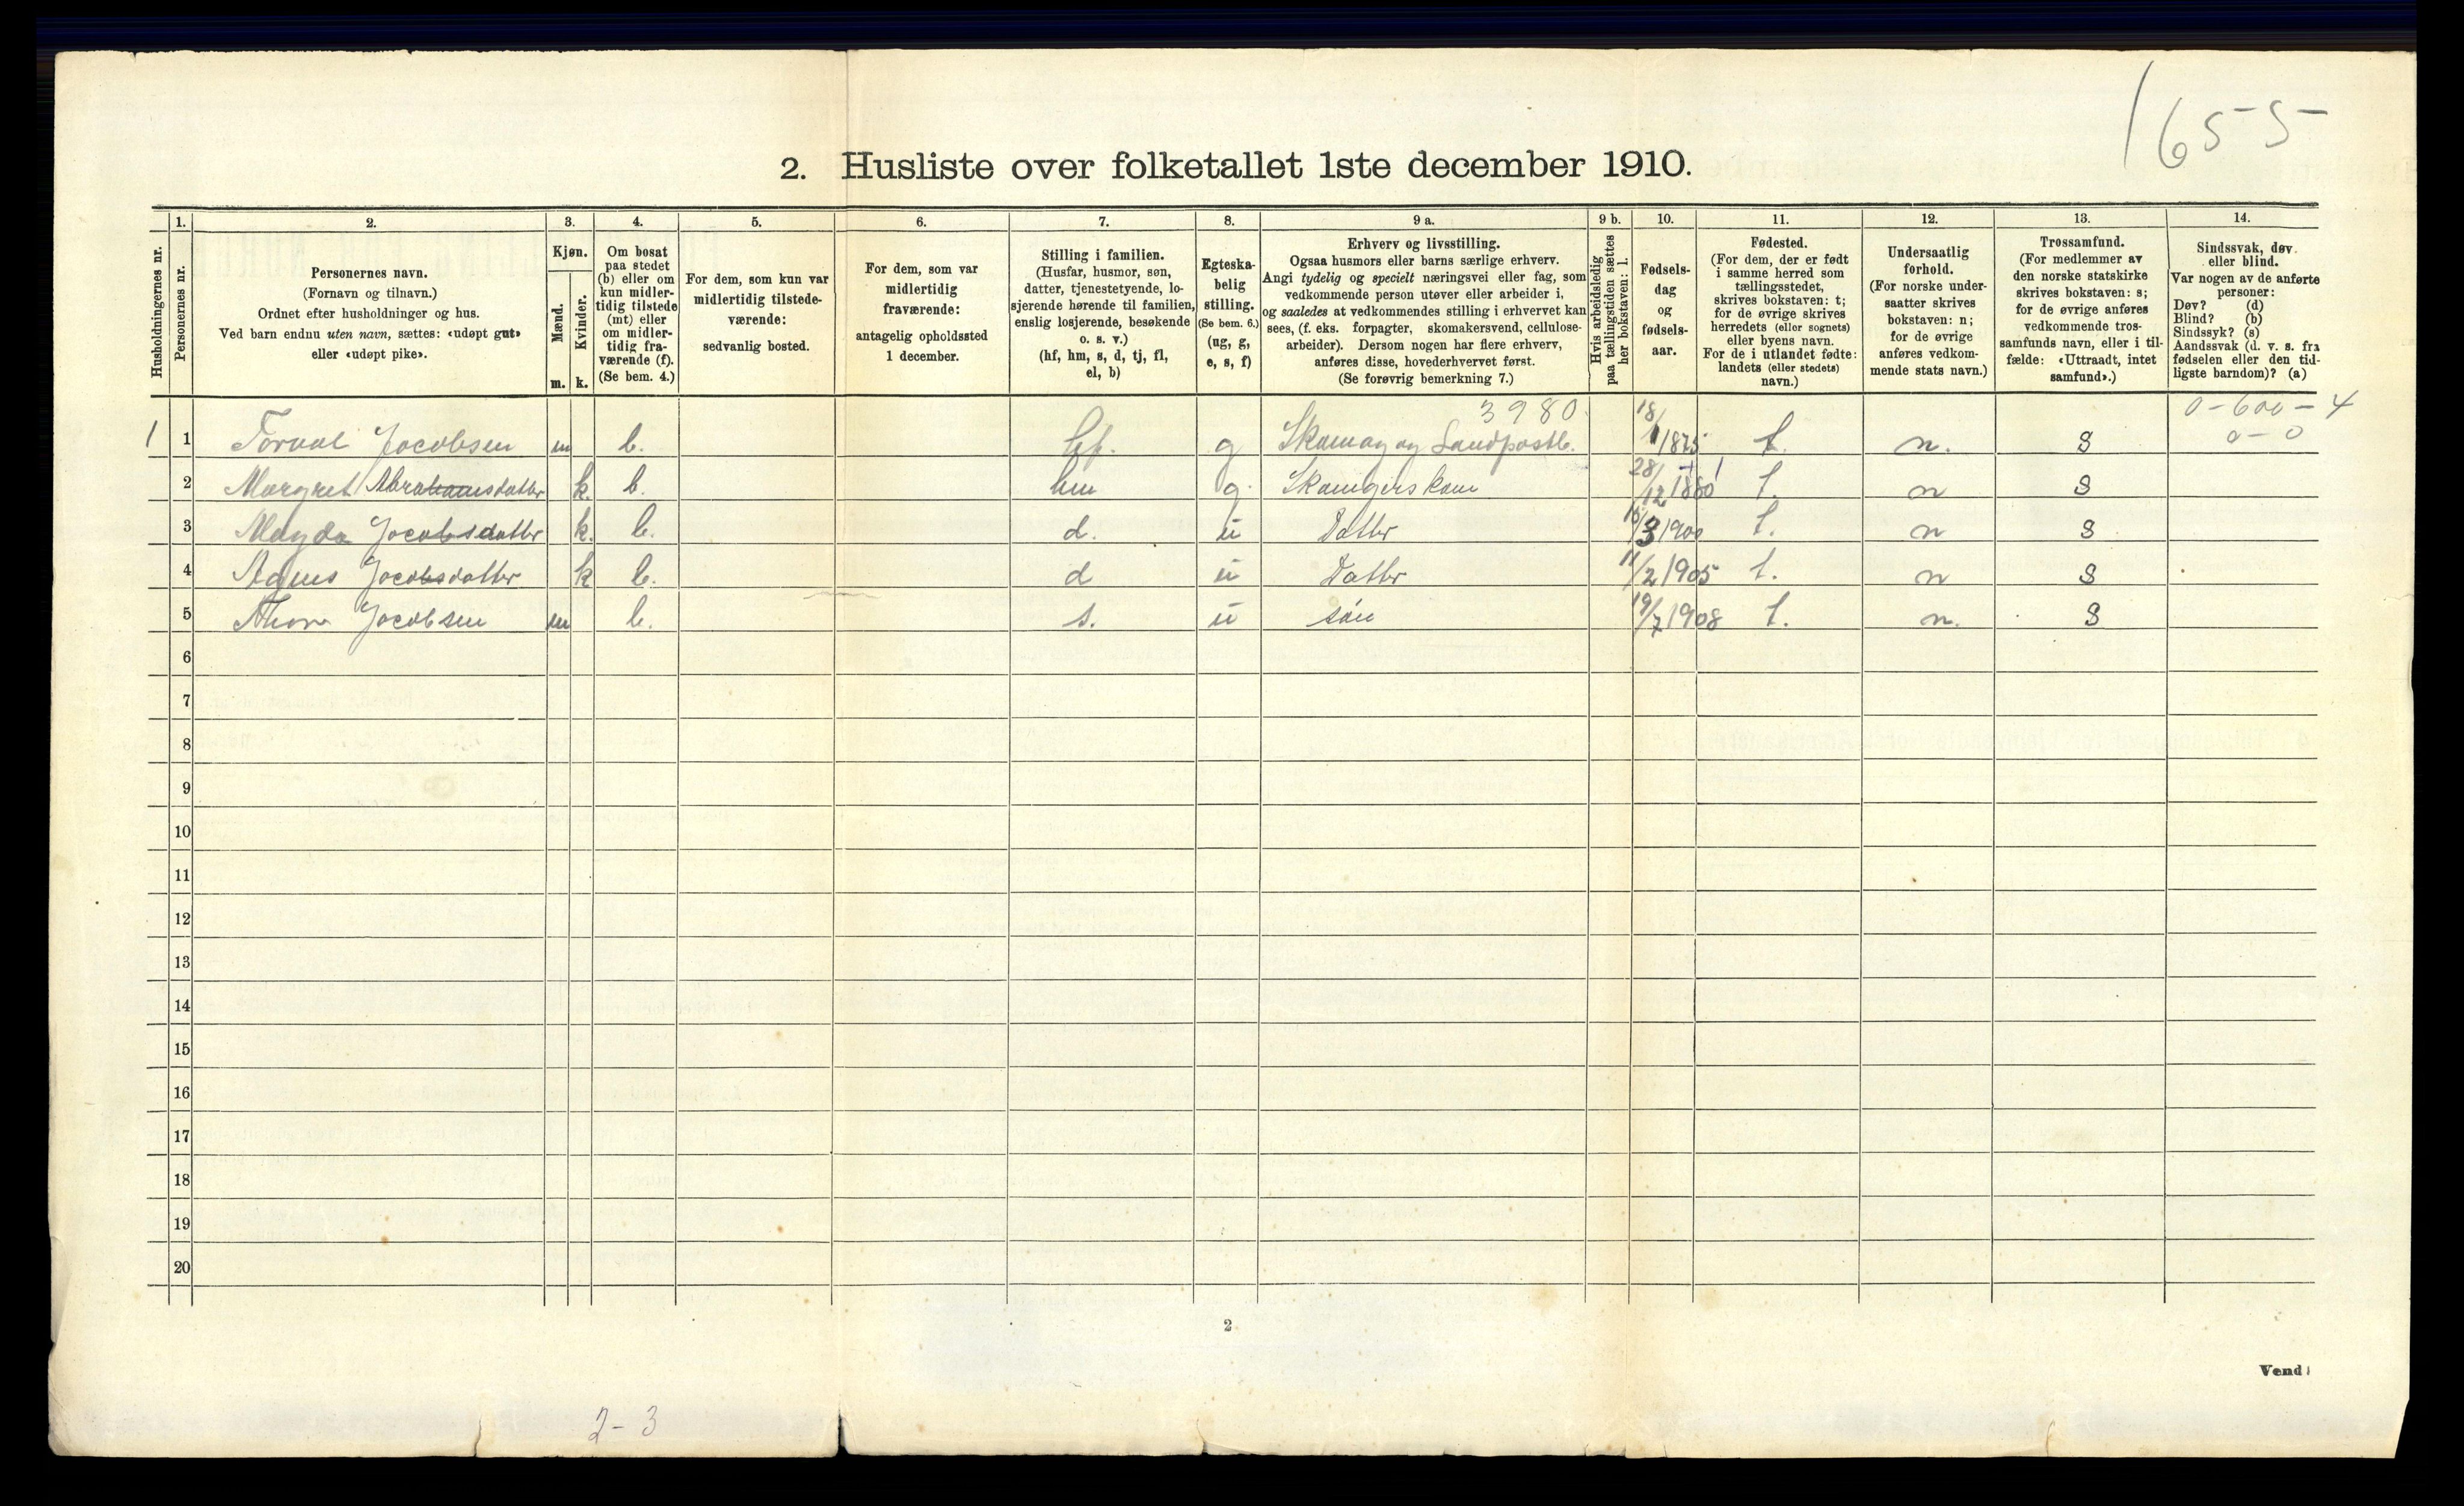 1655
2. Husliste over folketallet 1ste december 1910.
1. 2. 3. 4. 5. 6. 7. 8. 9 a. 9 b. 10. 11. 12. 13. 14.
Husholdningernes nr.
Personernes nr.
Personernes navn.
(Fornavn og tilnavn.)
Ordnet efter husholdninger og hus.
Ved barn endnu uten navn, sættes: «udøpt gut»
eller «udøpt pike».
Kjøn.
Mænd.
Kvinder.
m. k.
Om bosat
paa stedet
(b) eller om
kun midler-
tidig tilstede
(mt) eller
om midler-
tidig fra-
værende (f).
(Se bem. 4.)
For dem, som kun var
midlertidig tilstede-
værende:
sedvanlig bosted.
For dem, som var
midlertidig
fraværende:
antagelig opholdssted
1 december.
Stilling i familien.
(Husfar, husmor, søn,
datter, tjenestetyende, lo-
sjerende hørende til familien,
enslig losjerende, besøkende
o. s. v.)
(hf, hm, s, d, tj, fl,
el, b)
Egteska-
belig
stilling.
(Se bem. 6.)
(ug, g,
e, s, f)
Erhverv og livsstilling.
Ogsaa husmors eller barns særlige erhverv.
Angi tydelig og specielt næringsvei eller fag, som
vedkommende person utøver eller arbeider i,
og saaledes at vedkommendes stilling i erhvervet kan
sees, (f. eks. forpagter, skomakersvend, cellulose-
arbeider). Dersom nogen har flere erhverv,
anføres disse, hovederhvervet først.
(Se forøvrig bemerkning 7.)
Hvis arbeidsledig
paa tællingstiden sættes
her bokstaven: l.
Fødsels-
dag
og
fødsels-
aar.
Fødested.
(For dem, der er født
i samme herred som
tællingsstedet,
skrives bokstaven: t;
for de øvrige skrives
herredets (eller sognets)
eller byens navn.
For de i utlandet fødte:
landets (eller stedets)
navn.)
Undersaatlig
forhold.
(For norske under-
saatter skrives
bokstaven: n;
for de øvrige
anføres vedkom-
mende stats navn.)
Trossamfund.
(For medlemmer av
den norske statskirke
skrives bokstaven: s;
for de øvrige anføres
vedkommende tros-
samfunds navn, eller i til-
fælde: «Uttraadt, intet
samfund».)
Sindssvak, døv
eller blind.
Var nogen av de anførte
personer:
Døv? (d)
Blind? (b)
Sindssyk? (s)
Aandssvak (d. v. s. fra
fødselen eller den tid-
ligste barndom)? (a)
3980. 0-600-4
1 1 Torval Jocobsen m b. hf. g Skomag og Landpostb. 18/1 1875 t. n. S 0-0
2 Margret Abrahamsdatter k. b. hm g. 28/12 1880 t. n S
3 Magda Jocobsdatter k. b. d. u Datter 1900 t. n S
4 Agnes Jocobsdatter k b. d u Datter 11/2 1905 t. n S
5 Thor Jocobsen m b. s. u søn 19/7 1908 t. n. S
6
7
8
9
10
11
12
13
14
15
16
17
18
19
20
2
Vend!
2-3